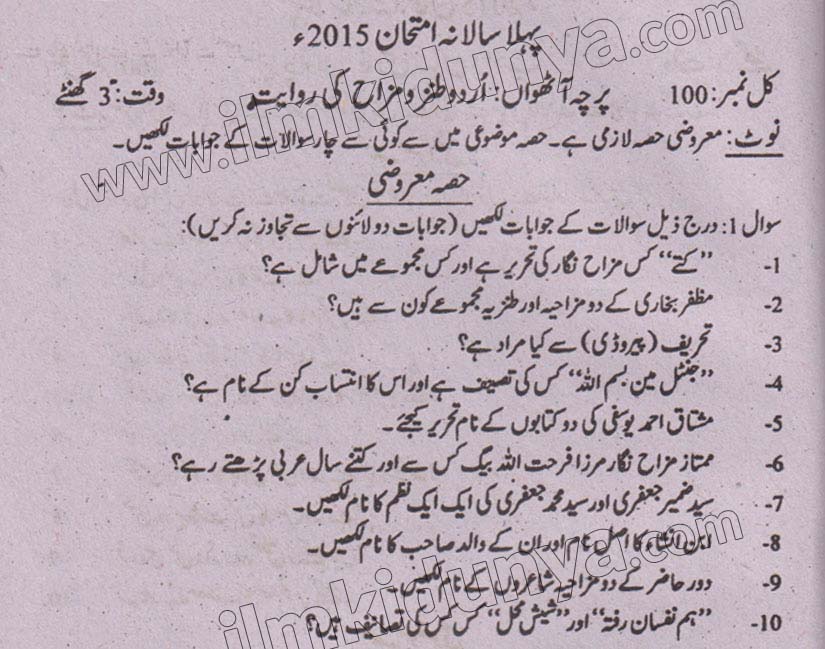 پہلا سالانہ امتحان 2015ء
کل نمبر: 100 پرچہ آٹھواں: اُردو طنز و مزاح کی روایت وقت: 3 گھنٹے
نوٹ: معروضی حصہ لازمی ہے۔ حصہ موضوعی میں سے کوئی سے چار سوالات کے جوابات لکھیں۔
حصہ معروضی
سوال 1: درج ذیل سوالات کے جوابات لکھیں (جوابات دو لائنوں سے تجاوز نہ کریں):
1- ”کتے“ کس مزاح نگار کی تحریر ہے اور کس مجموعے میں شامل ہے؟
2- مظفر بخاری کے دو مزاحیہ اور طنزیہ مجموعے کون سے ہیں؟
3- تحریف (پیروڈی) سے کیا مراد ہے؟
4- ”جنٹل مین بسم اللہ“ کس کی تصیف ہے اور اس کا انتساب کن کے نام ہے؟
5- مشتاق احمد یوسفی کی دو کتابوں کے نام تحریر کیجئے۔
6- ممتاز مزاح نگار مرزا فرحت اللہ بیگ کس سے اور کتنے سال عربی پڑھتے رہے؟
7- سید ضمیر جعفری اور سید محمد جعفری کی ایک ایک نظم کا نام لکھیں۔
8- ابن انشاء کا اصل نام اور ان کے والد صاحب کا نام لکھیں۔
9- دور حاضر کے دو مزاحیہ شاعروں کے نام لکھیں۔
10- ”ہم نفسان رفتہ“ اور ”شیش محل“ کس کس کی تصانیف ہیں؟
www.ilmkidunya.com
ilmkidunya.com